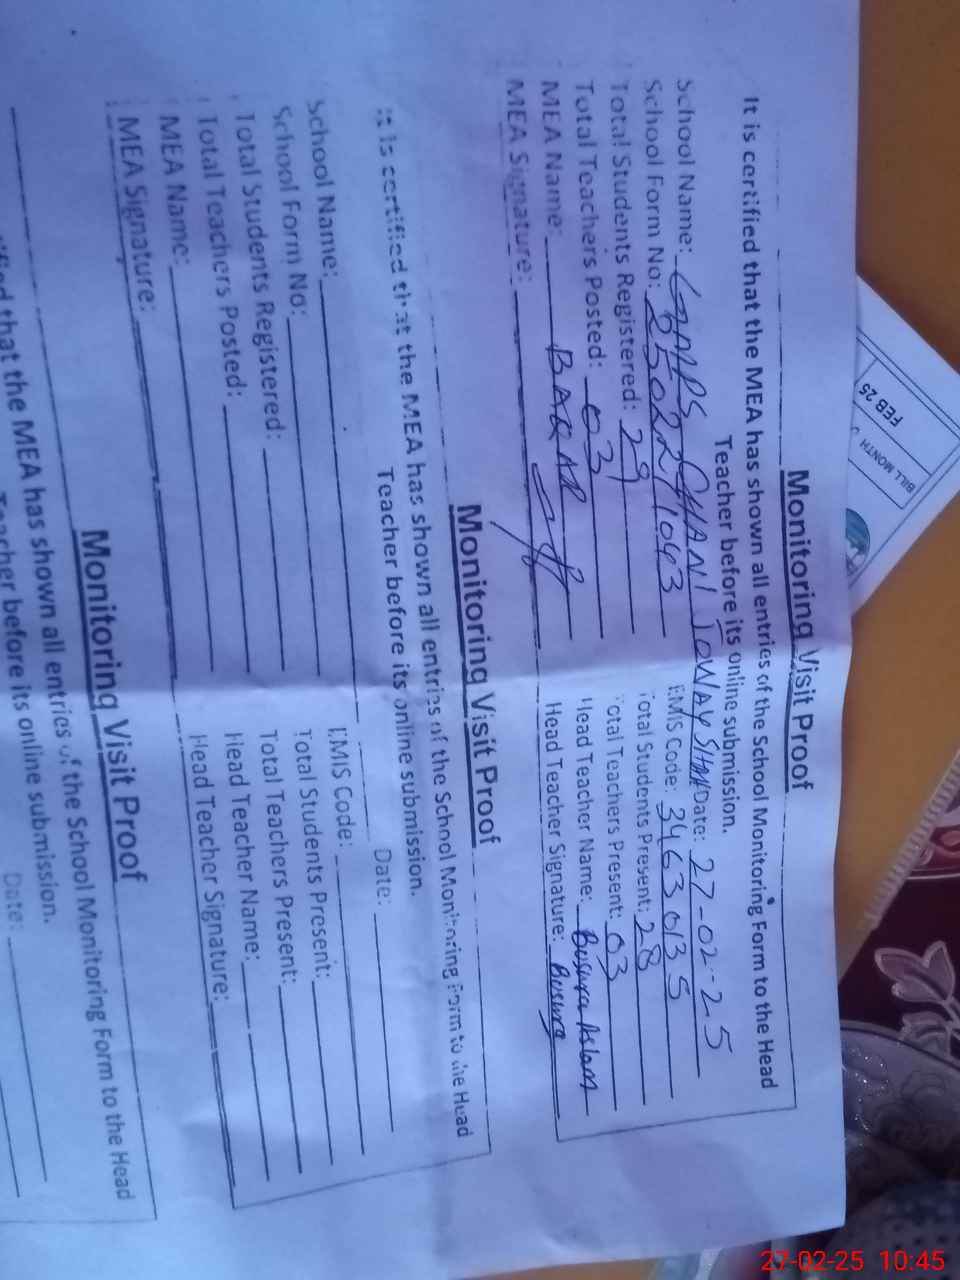 Monitoring Visit Proof
It is certified that the MEA has shown all entries of the School Monitoring Form to the Head
Teacher before its online submission.
School Name: GGPS CHANI TOWAY SHAH Date: 27-02-25
School Form No: EMIS Code: 34630135
Total Students Registered: 29 Total Students Present: 28
Total Teachers Posted: 03 Total Teachers Present: 03
MEA Name: BAQAR Head Teacher Name: Aslam
MEA Signature: Head Teacher Signature:
Monitoring Visit Proof
It is certified that the MEA has shown all entries of the School Monitoring Form to the Head
Teacher before its online submission.
School Name: Date:
School Form No: EMIS Code:
Total Students Registered: Total Students Present:
Total Teachers Posted: Total Teachers Present:
MEA Name: Head Teacher Name:
MEA Signature: Head Teacher Signature:
Monitoring Visit Proof
that the MEA has shown all entries of the School Monitoring Form to the Head
Teacher before its online submission.
Date:
FEB 25
BILL MONTH
27-02-25 10:45